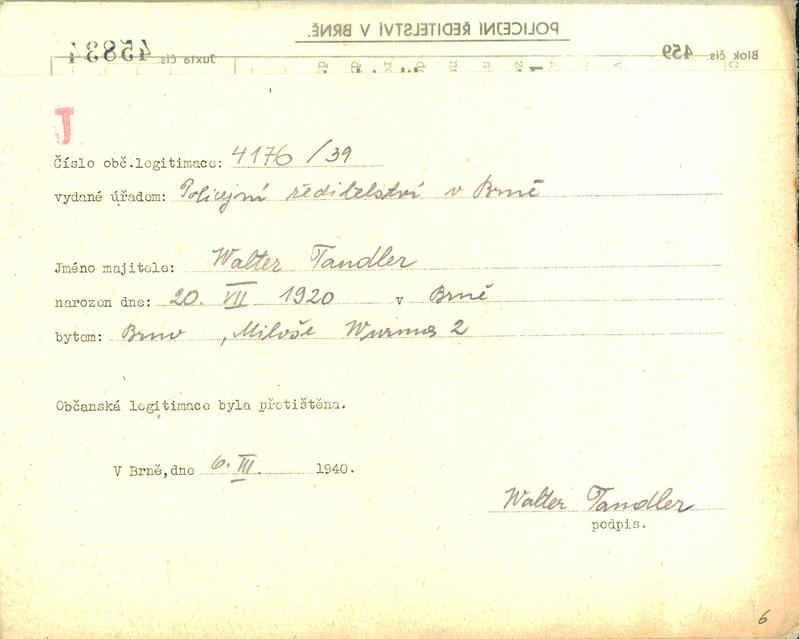 POLICEJNÍ ŘEDITELSTVÍ V BRNĚ.
Blok čís. 459
Juxta čís. 45834
J
Číslo obč.legitimace: 4176 /39
vydané úřadem: Policejní ředitelství v Brně
Jméno majitele: Walter Tandler
narozen dne: 20. VII 1920 v Brně
bytem: Brno , Miloše Wurma 2
Občanská legitimace byla přetištěna.
V Brně,dne 6. III. 1940.
Walter Tandler
podpis.
6